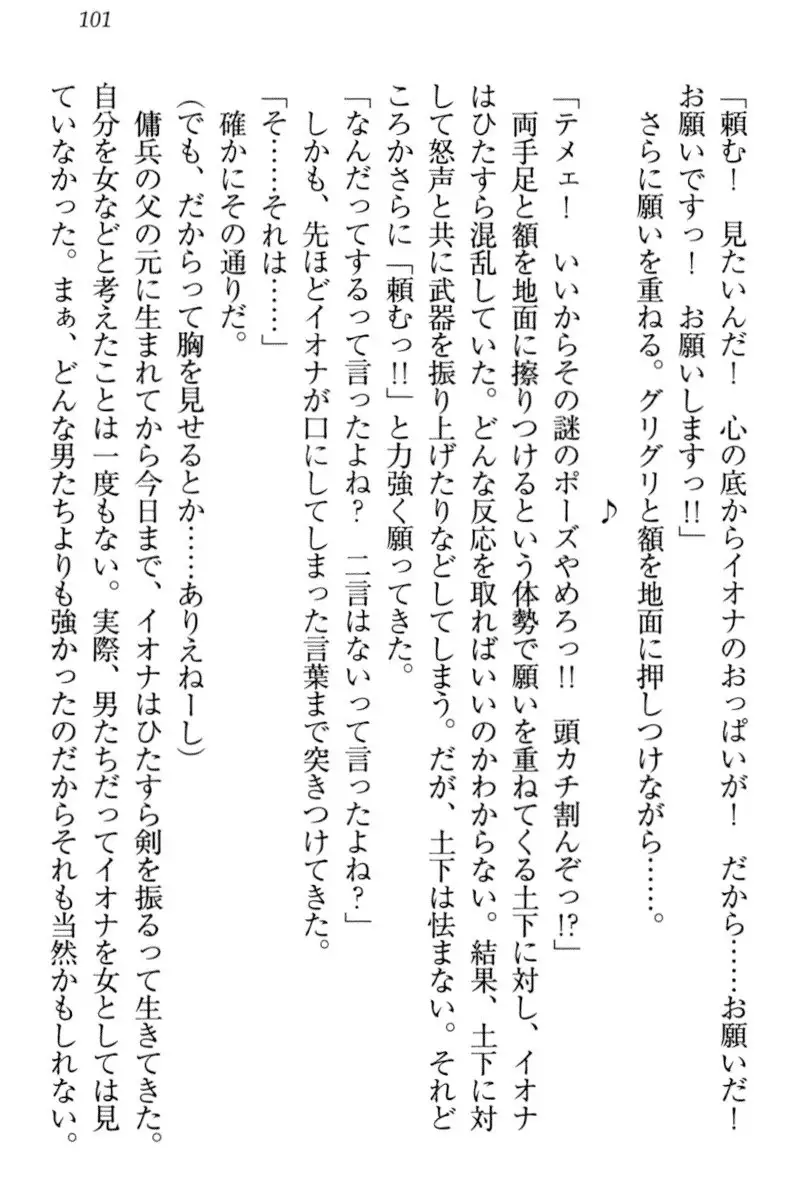 101
「頼む！　見たいんだ！　心の底からイオナのおっぱいが！　だから……お願いだ！
お願いですっ！　お願いしますっ!!」
さらに願いを重ねる。グリグリと額を地面に押しつけながら……。
♪
「テメェ！　いいからその謎のポーズやめろっ!!　頭カチ割んぞっ!?」
両手足と額を地面に擦りつけるという体勢で願いを重ねてくる土下に対し、イオナ
はひたすら混乱していた。どんな反応を取ればいいのかわからない。結果、土下に対
して怒声と共に武器を振り上げたりなどしてしまう。だが、土下は怯まない。それど
ころかさらに「頼むっ!!」と力強く願ってきた。
「なんだってするって言ったよね？　二言はないって言ったよね？」
しかも、先ほどイオナが口にしてしまった言葉まで突きつけてきた。
「そ……それは……」
確かにその通りだ。
（でも、だからって胸を見せるとか……ありえねーし）
傭兵の父の元に生まれてから今日まで、イオナはひたすら剣を振るって生きてきた。
自分を女などと考えたことは一度もない。実際、男たちだってイオナを女としては見
ていなかった。まぁ、どんな男たちよりも強かったのだからそれも当然かもしれない。